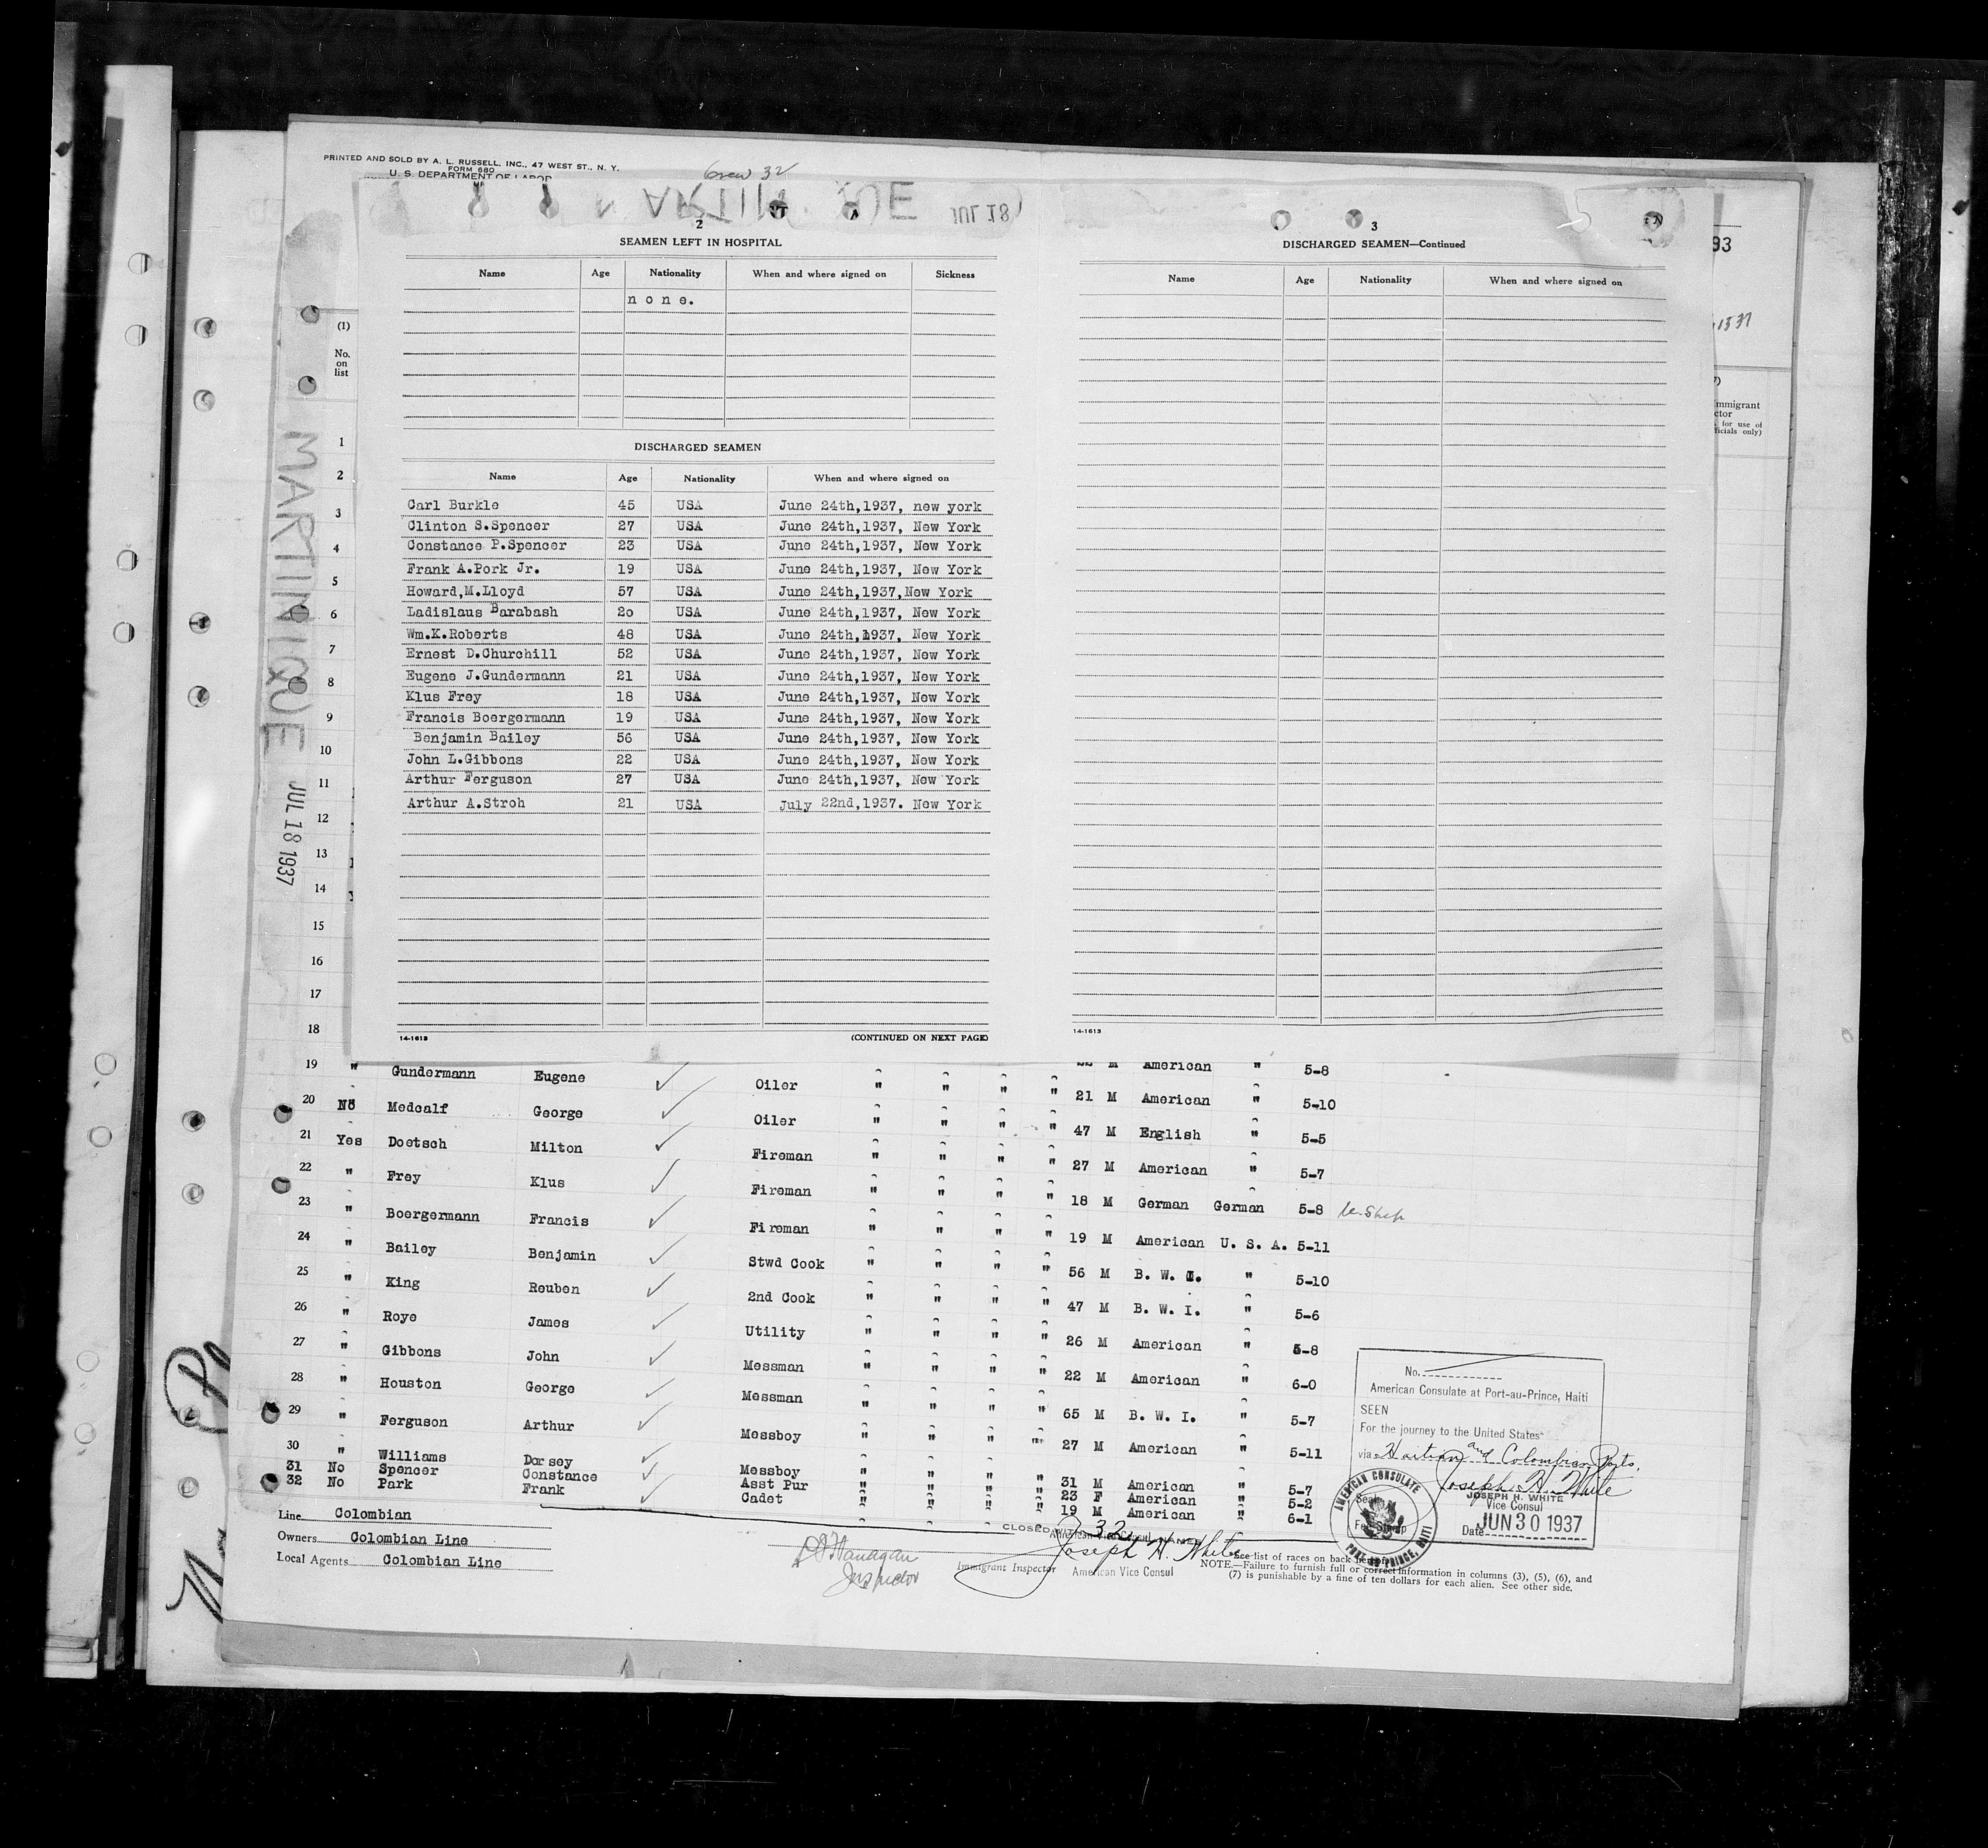 PRINTED AND SOLD BY A. L. RUSSELL, INC., 47 WEST ST., N. Y.
FORM 680
U. S. DEPARTMENT OF LABOR
Crew 32
JUL 18
2
SEAMEN LEFT IN HOSPITAL
Name Age Nationality When and where signed on Sickness
none.
DISCHARGED SEAMEN
Name Age Nationality When and where signed on
Carl Burkle 45 USA June 24th,1937, new york
Clinton S.Spencer 27 USA June 24th,1937, New York
Constance P.Spencer 23 USA June 24th,1937, New York
Frank A.Pork Jr. 19 USA June 24th,1937, New York
Howard,M.Lloyd 57 USA June 24th,1937,New York
Ladislaus Barabash 2o USA June 24th,1937, New York
Wm.K.Roberts 48 USA June 24th,1937, New York
Ernest D.Churchill 52 USA June 24th,1937, New York
Eugene J.Gundermann 21 USA June 24th,1937, New York
Klus Frey 18 USA June 24th,1937, New York
Francis Boergermann 19 USA June 24th,1937, New York
Benjamin Bailey 56 USA June 24th,1937, New York
John L.Gibbons 22 USA June 24th,1937, New York
Arthur Ferguson 27 USA June 24th,1937, New York
Arthur A.Stroh 21 USA July 22nd,1937. New York
14-1613 (CONTINUED ON NEXT PAGE)
3
DISCHARGED SEAMEN—Continued
Name Age Nationality When and where signed on
14-1613
93
1537
(7)
mmigrant
ctor
for use of
ficials only)
(1)
No.
on
list
1
2
3
4
5
6
7
8
9
10
11
12
13
14
15
16
17
18
MARTINIQUE JUL 18 1937
19 " Gundermann Eugene Oiler " " " " 21 M American " 5-10
5-8
20 No Medcalf George Oiler " " " " 47 M English " 5-5
21 Yes Doetsch Milton Fireman " " " " 27 M American " 5-7
22 " Frey Klus Fireman " " " " 18 M German German 5-8
23 " Boergermann Francis Fireman " " " " 19 M American U. S. A. 5-11
24 " Bailey Benjamin Stwd Cook " " " " 56 M B. W. I. " 5-10
25 " King Reuben 2nd Cook " " " " 47 M B. W. I. " 5-6
26 " Roye James Utility " " " " 26 M American " 5-8
27 " Gibbons John Messman " " " " 22 M American " 6-0
28 " Houston George Messman " " " " 65 M B. W. I. " 5-7
29 " Ferguson Arthur Messboy " " " " 27 M American " 5-11
30 " Williams Dorsey Messboy " " " " 31 M American " 5-7
31 No Spencer Constance Asst Pur " " " " 23 F American " 5-2
32 No Park Frank Cadet " " " " 19 M American " 6-1
Line Colombian
Owners Colombian Line
Local Agents Colombian Line
Flanagan
Inspector
CLOSED 32
Joseph H. White
Immigrant Inspector
American Vice Consul
See list of races on back hereof.
NOTE.—Failure to furnish full or correct information in columns (3), (5), (6), and
(7) is punishable by a fine of ten dollars for each alien. See other side.
No.
American Consulate at Port-au-Prince, Haiti
SEEN
For the journey to the United States
via Haitian and Colombian Ports.
Joseph H. White
JOSEPH H. WHITE
Vice Consul
Date JUN 30 1937
Seal
Fee Stamp
AMERICAN CONSULATE
PORT-AU-PRINCE, HAITI